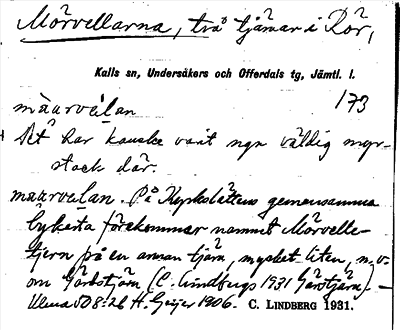 Mörvellarna, två tjärnar i Rör,
Kalls sn, Undersåkers och Offerdals tg, Jämtl. l.
173
määrvèlan
Det har kanske varit ngn väldig myr-
stack där.
määrvèlan. På Kyrkslättens gemensamma
bykarta förekommer namnet Mörvelle-
tjern på en annan tjärn, mycket liten, n.v.
om Gärdstjärn (C. Lindbergs 1931 Gärdtjärn).—
Ulma 508:26 H. Geijer 1906. C. LINDBERG 1931.